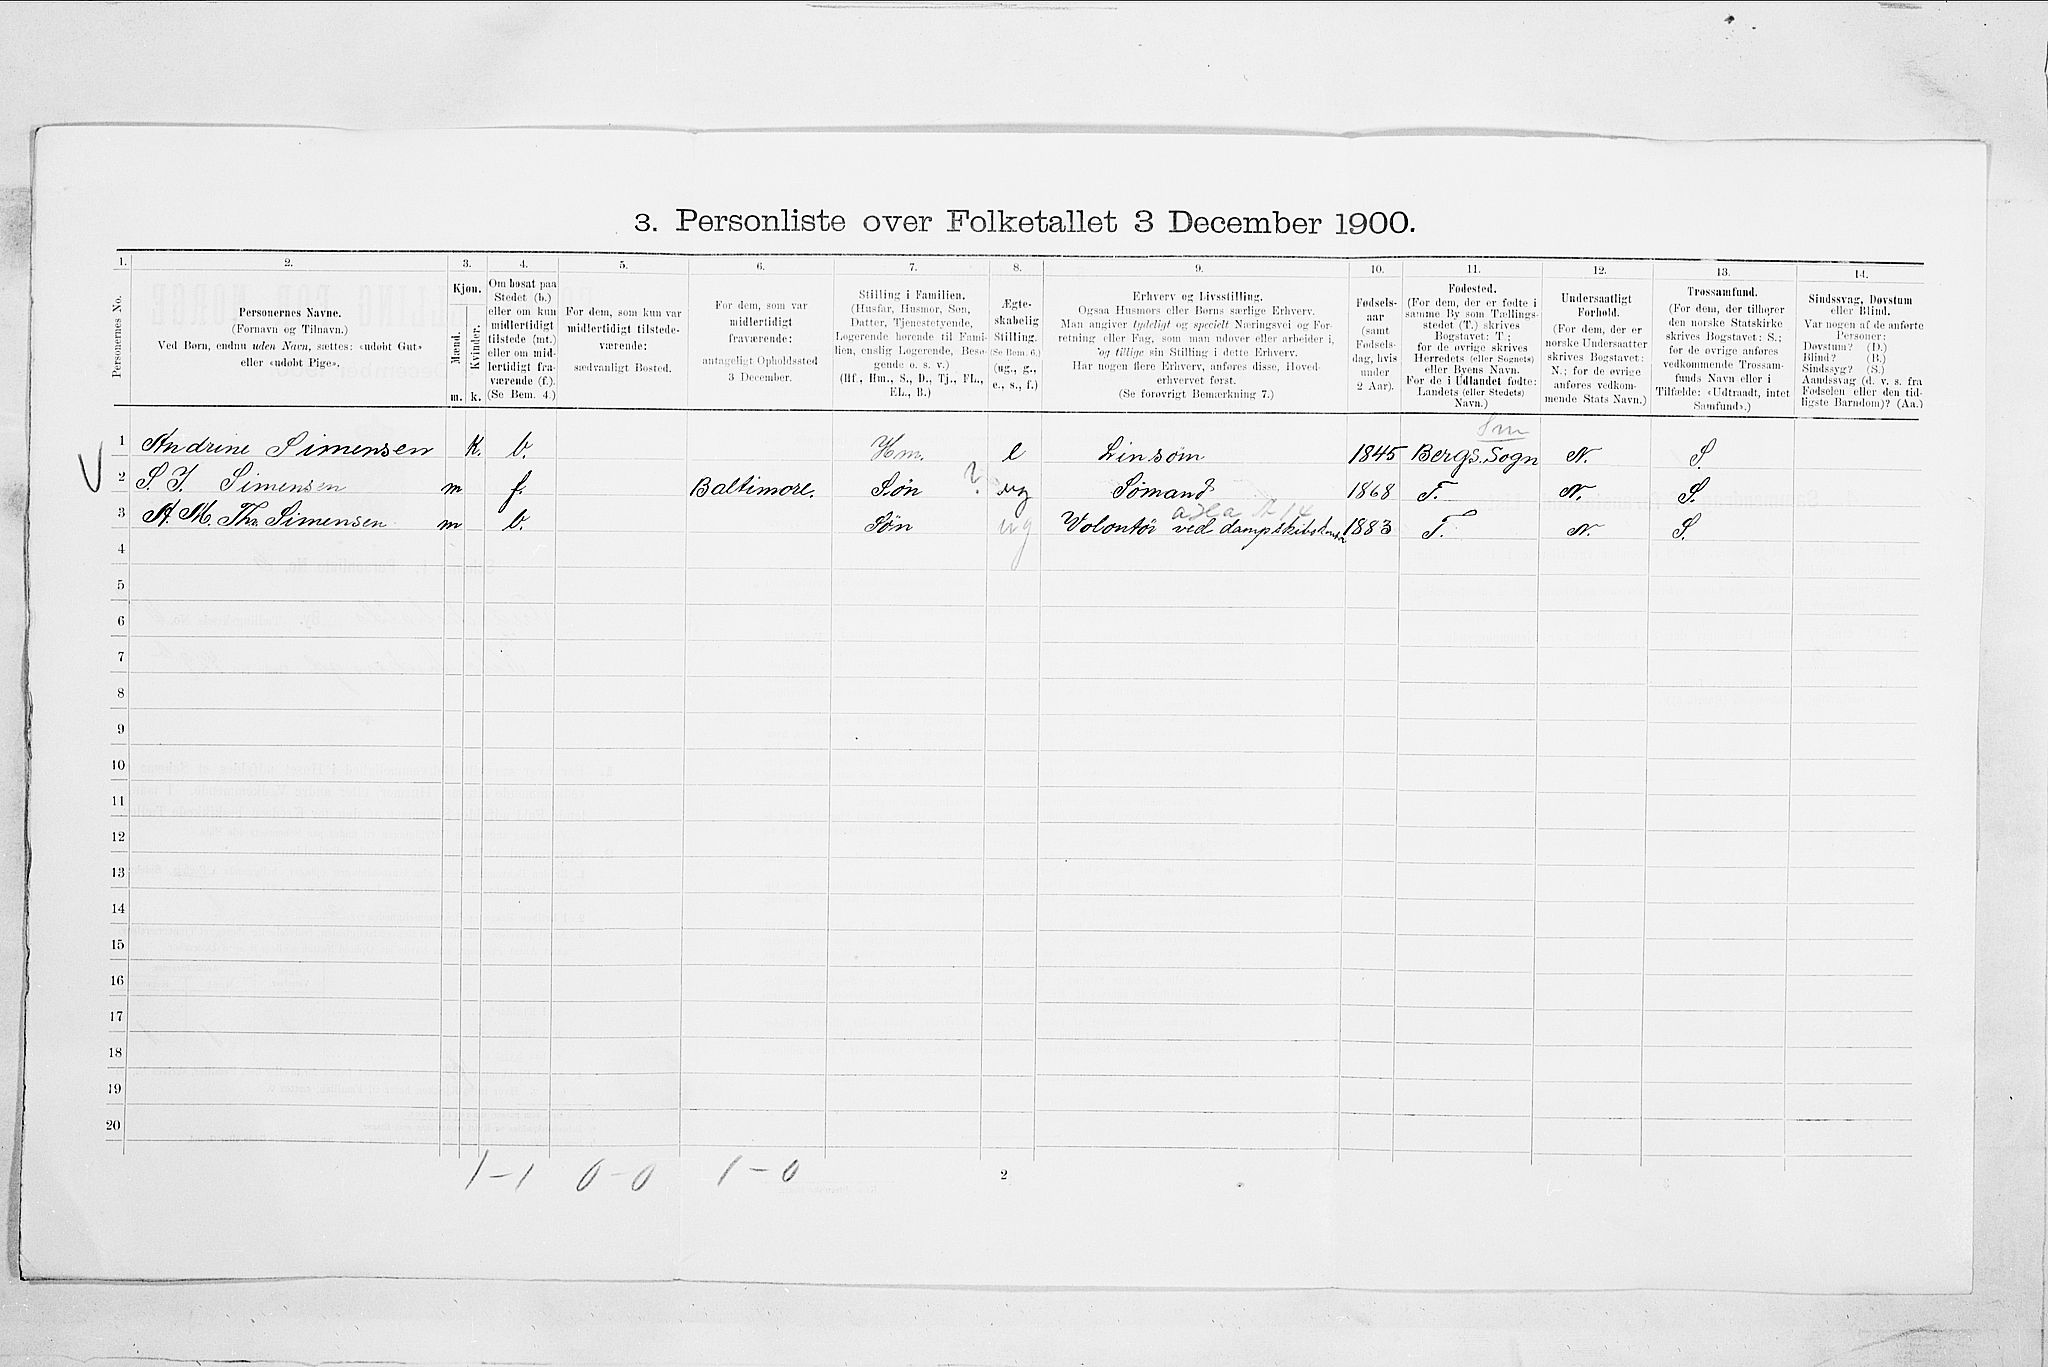 3. Personliste over Folketallet 3 December 1900.
1. 2. 3. 4. 5. 6. 7. 8. 9. 10. 11. 12. 13. 14.
Personernes No.
Personernes Navne.
(Fornavn og Tilnavn.)
Ved Børn, endnu uden Navn, sættes: «udøbt Gut»
eller «udøbt Pige».
Kjøn.
Mænd.
Kvinder.
m. k.
Om bosat paa
Stedet (b.)
eller om kun
midlertidigt
tilstede (mt.)
eller om mid-
lertidigt fra-
værende (f.).
(Se Bem. 4.)
For dem, som kun var
midlertidigt tilstede-
værende:
sædvanligt Bosted.
For dem, som var
midlertidigt
fraværende:
antageligt Opholdssted
3 December.
Stilling i Familien.
(Husfar, Husmor, Søn,
Datter, Tjenestetyende,
Logerende hørende til Fami-
lien, enslig Logerende, Besø-
gende o. s. v.)
(Hf., Hm., S., D., Tj., FL.,
EL., B.)
Ægte-
skabelig
Stilling.
(Se Bem. 6.)
(ug., g.,
e., s., f.)
Erhverv og Livsstilling.
Ogsaa Husmors eller Børns særlige Erhverv.
Man angiver tydeligt og specielt Næringsvei og For-
retning eller Fag, som man udøver eller arbeider i,
og tillige sin Stilling i dette Erhverv.
Har nogen flere Erhverv, anføres disse, Hoved-
erhvervet først.
(Se forøvrigt Bemærkning 7.)
Fødsels-
aar
(samt
Fødsels-
dag, hvis
under
2 Aar).
Fødested.
(For dem, der er fødte i
samme By som Tællings-
stedet (T.) skrives
Bogstavet: T.;
for de øvrige skrives
Herredets (eller Sognets)
eller Byens Navn.
For de i Udlandet fødte:
Landets (eller Stedets)
Navn.)
Undersaatligt
Forhold.
(For dem, der er
norske Undersaatter
skrives Bogstavet:
N.; for de øvrige
anføres vedkom-
mende Stats Navn.)
Trossamfund.
(For dem, der tilhører
den norske Statskirke
skrives Bogstavet: S.;
for de øvrige anføres
vedkommende Trossam-
funds Navn eller i
Tilfælde: «Udtraadt, intet
Samfund».)
Sindssvag, Døvstum
eller Blind.
Var nogen af de anførte
Personer:
Døvstum? (D.)
Blind? (B.)
Sindssyg? (S.)
Aandssvag (d. v. s. fra
Fødselen eller den tid-
ligste Barndom)? (Aa.)
Sm
1 Andrine Simensen K. b. Hm. e Linsøm 1845 Bergs. Sogn N. S.
2 S. J. Simensen m f. Baltimore. Søn ? ug Sømand 1868 T. N. S.
3 A. M. Thr. Simensen m b. Søn ug Volontør ved dampskibskontor 1883 T. N. S.
4
5
6
7
8
9
10
11
12
13
14
15
16
17
18
19
20
1-1 0-0 1-0
2